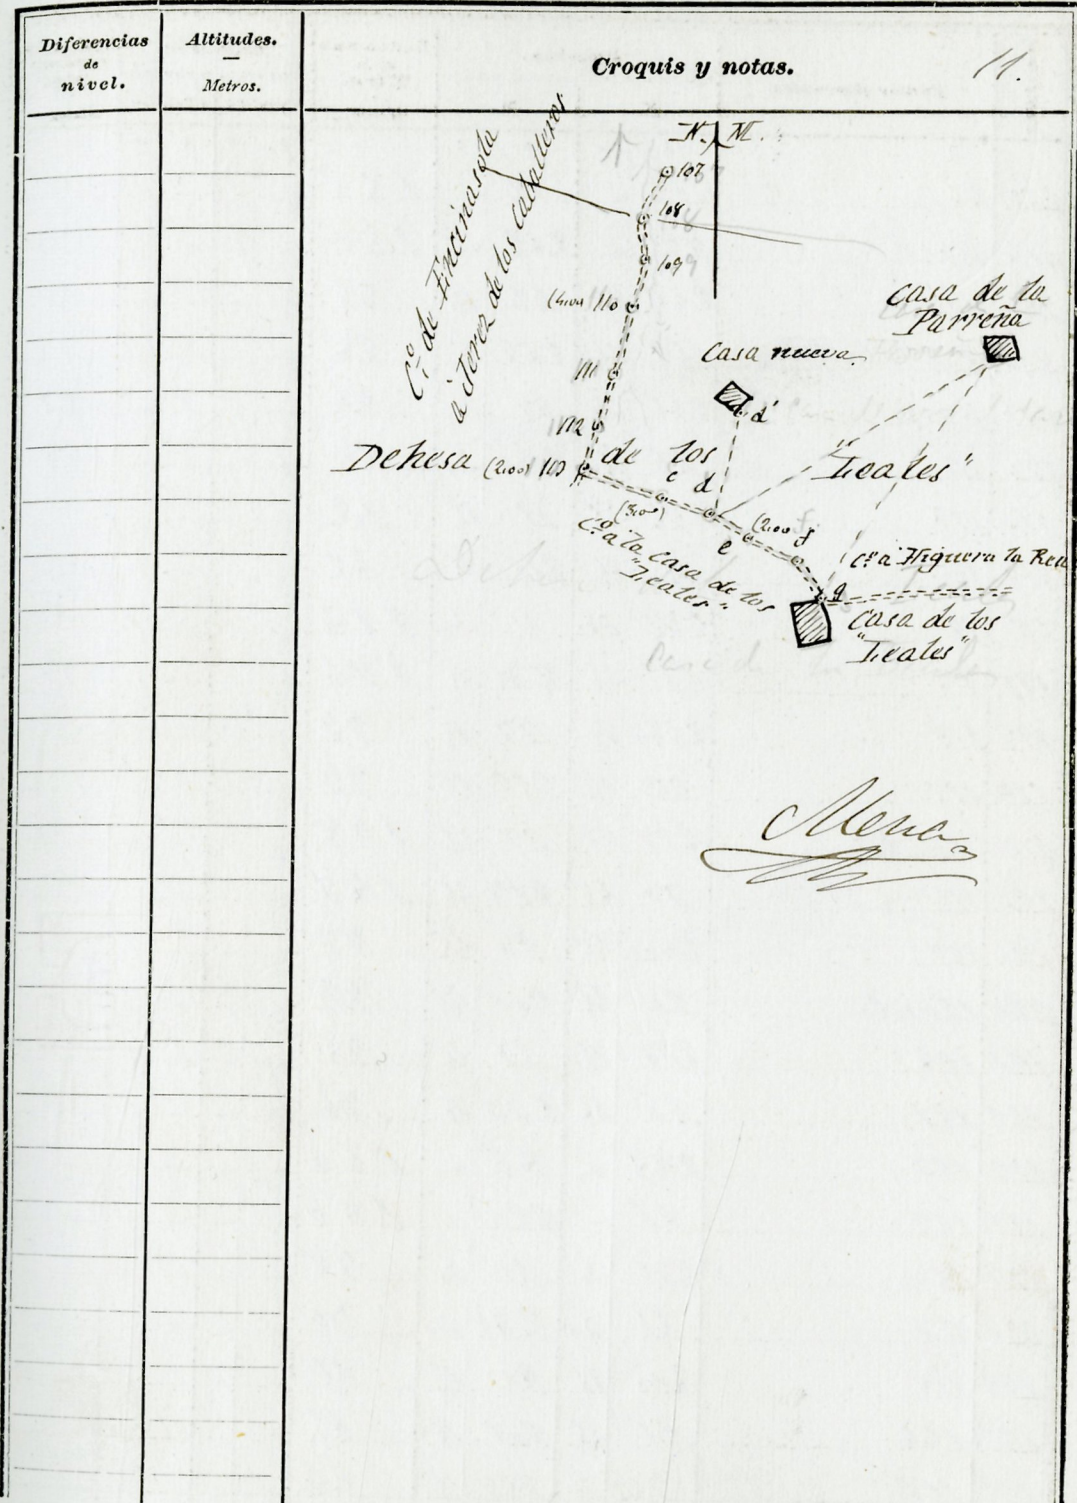 Diferencias
de
nivel.
Altitudes.
Metros.
Croquis y notas.
11.
N. M.
107
108
109
110
111
112
113
Cº de Encinasola
a Jerez de los Caballeros
Casa de la
Parreña
Casa nueva
d'
Dehesa de los "Leales"
c
d
e
f
g
Cº a la casa de los
"Leales"
Cº a Higuera la Real
Casa de los
"Leales"
Mena